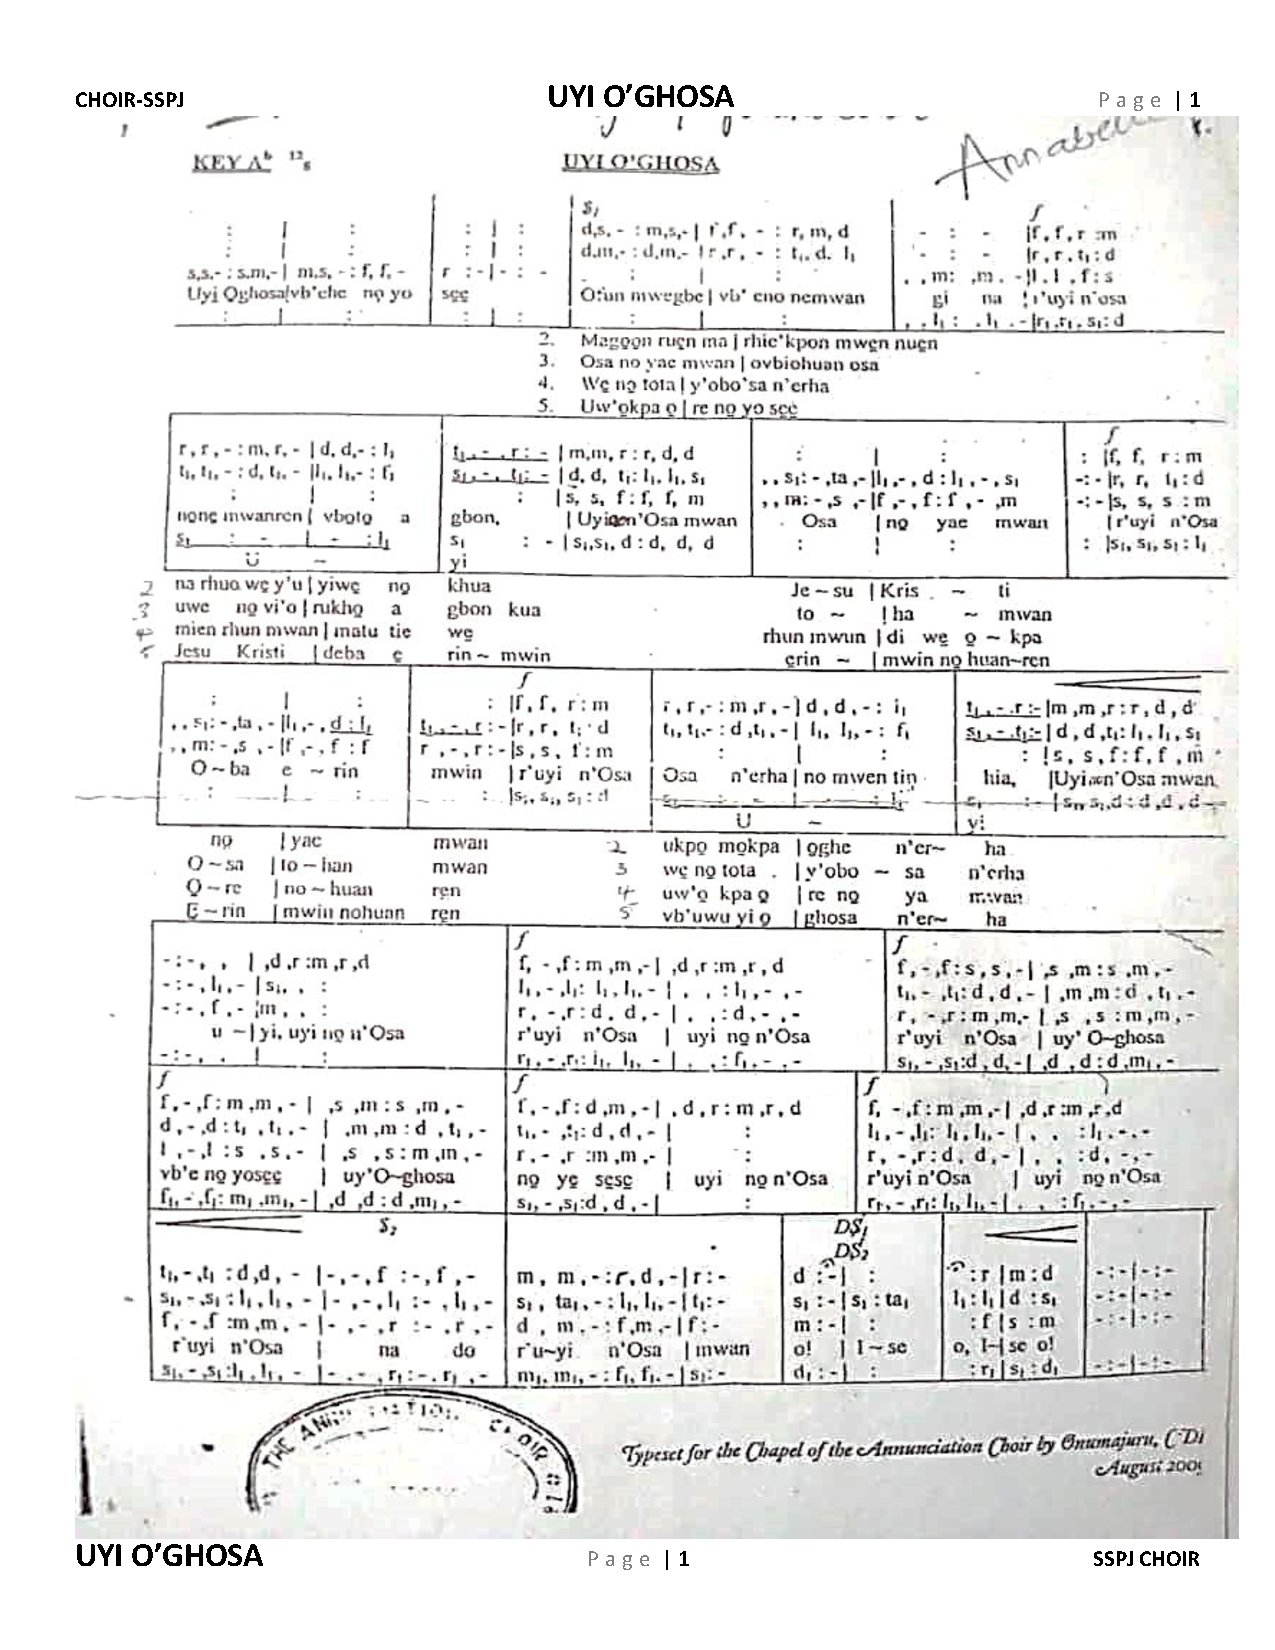 CHOIR-SSPJ UYI O’GHOSA Page | 1
Annabelle
KEY Aᵇ 12/8 UYI O'GHOSA
S₁ f
: | : : | : d,s,- : m,s,- | f,f, - : r, m, d - : - |f, f, r :m
: | : : | : d,m,- : d,m,- | r,r, - : t₁, d. l₁ - : - |r, r. t₁ : d
s,s,- : s,m,- | m,s, - : f, f, - r : - | - : - : | :
Uyi Oghosa|vb'ehe nọ yo sẹẹ Ofun mwegbe | vb' eno nemwan gi na r'uyi n'osa
: | : : | : : | : , , l₁ : , l₁ . - |r₁,r₁, s₁ : d
2. Magọọn ruẹn ma | rhie'kpon mwẹn nuẹn
3. Osa no yae mwan | ovbiohuan osa
4. Wẹ nọ tota | y'obo'sa n'erha
5. Uw'ọkpa ọ | re nọ yo sẹẹ
f
r, r, - : m, r, - | d, d,- : l₁ t₁, - , r : - | m,m, r : r, d, d : | : : |f, f, r : m
t₁, t₁, - : d, t₁, - |l₁, l₁,- : f₁ s₁, - , t₁ : - | d, d, t₁: l₁, l₁, s₁ , , s₁: - ,ta , - |l₁,-, d : l₁ , - , s₁ -: - |r, r, t₁ : d
: | : : |s, s, f : f, f, m , , m: - ,s , - |f , - , f : f , - , m -: - |s, s, s : m
none mwanren | vboto a gbon, | Uyi n'Osa mwan Osa | nọ yae mwan | r'uyi n'Osa
s₁ : - | - : l₁ s₁ : - | s₁,s₁, d : d, d, d : | : : |s₁, s₁, s₁ : l₁
U ~ yi
2 na rhuo wẹ y'u | yiwẹ nọ khua Je ~ su | Kris ~ ti
3 uwe nọ vi'o | rukhọ a gbon kua to ~ | ha ~ mwan
4 mien rhun mwan | matu tie wẹ rhun mwun | di wẹ ọ ~ kpa
5 Jesu Kristi | deba ẹ rin ~ mwin ẹrin ~ | mwin nọ huan~ren
f
: | : : |f, f, r : m r, r,- : m ,r, - | d , d , - : l₁ t₁, - , r :- |m ,m ,r : r, d , d
, , s₁: - ,ta , - |l₁, - , d : l₁ t₁, - , r : - |r, r, t₁ : d t₁, t₁,- : d ,t₁, - | l₁, l₁,- : f₁ s₁, - , t₁:- | d , d ,t₁: l₁, l₁, s₁
, , m: - ,s , - |f , - , f : f r , - , r : - |s , s, f : m : | : : |s, s, f : f, f , m
O ~ ba e ~ rin mwin | r'uyi n'Osa Osa n'erha | no mwen tin hia, |Uyi n'Osa mwan,
: | : : |s₁, s₁, s₁ : d s₁ : - | - : l₁ s₁ :- | s₁, s₁,d : d ,d , d
U ~ yi
nọ | yae mwan 2 ukpọ mọkpa | ọghe n'er~ ha
O ~ sa | to ~ han mwan 3 wẹ nọ tota | y'obo ~ sa n'erha
O ~ re | no ~ huan ren 4 uw'ọ kpa ọ | re nọ ya mwan
E ~ rin | mwin nohuan ren 5 vb'uwu yi ọ | ghosa n'er~ ha
f f
- : - , , | ,d ,r :m ,r ,d f, - ,f : m ,m ,- | ,d ,r :m ,r , d f , - ,f : s , s , - | ,s ,m : s ,m , -
- : - , l₁, - | s₁, , : l₁ , - , l₁: l₁, l₁, - | , , : l₁ , - , - t₁, - ,t₁: d , d , - | ,m ,m : d , t₁ , -
- : - , f , - |m , , : r, - ,r : d, d, - | , , : d, - , - r, - ,r : m ,m,- | ,s ,s : m ,m , -
u ~ | yi, uyi nọ n'Osa r'uyi n'Osa | uyi nọ n'Osa r'uyi n'Osa | uy' O~ghosa
- : - , , | : r₁, - ,r₁: l₁, l₁, - | , , : f₁, - , - s₁, - ,s₁:d , d, - | ,d , d : d ,m₁ , -
f f f
f , - ,f : m ,m , - | ,s ,m : s ,m , - f , - ,f : d ,m , - | , d , r : m ,r , d f, - ,f : m ,m ,- | ,d ,r :m ,r ,d
d , - ,d : t₁ , t₁ , - | ,m ,m : d , t₁ , - t₁, - ,t₁: d , d , - | : l₁, - ,l₁: l₁, l₁,- | , , : l₁ , - , -
l , - ,l : s , s , - | ,s ,s : m ,m , - r , - ,r :m ,m ,- | : r, - ,r : d, d, - | , , : d, - , -
vb'e nọ yosẹẹ | uy'O~ghosa nọ yẹ sẹsẹ | uyi nọ n'Osa r'uyi n'Osa | uyi nọ n'Osa
f₁, - ,f₁: m₁ ,m₁, - | ,d ,d : d ,m₁ , - s₁, - ,s₁:d , d , - | : r₁, - ,r₁: l₁, l₁, - | , , : f₁, - , -
S₂ DS₁
DS₂
t₁, - ,t₁ : d,d, - |-,-, f :- ,f ,- m , m ,- : r, d,-| r :- d :- | : : r | m : d - : - | - : -
s₁, - ,s₁ : l₁, l₁, - |- , -, l₁ :- , l₁, - s₁ , ta₁, - : l₁, l₁,- | t₁:- s₁ :- | s₁ : ta₁ l₁ : l₁ | d : s₁ - : - | - : -
f, - ,f :m ,m , - |- , - ,r :- ,r , - d , m ,- : f ,m,-| f :- m :- | : : f | s : m - : - | - : -
r'uyi n'Osa | na do r'u~yi n'Osa | mwan o! | I ~ se o, I~| se o!
s₁, - ,s₁ :l₁ , l₁, - |- , - , r₁ :- , r₁ , - m₁, m₁, - : f₁, f₁, - | s₁:- d₁ : - | : : r₁ | s₁ : d₁ - : - | - : -
THE ANN CHOIR
Typeset for the Chapel of the Annunciation Choir by Onumajuru, C
August
UYI O’GHOSA Page | 1 SSPJ CHOIR